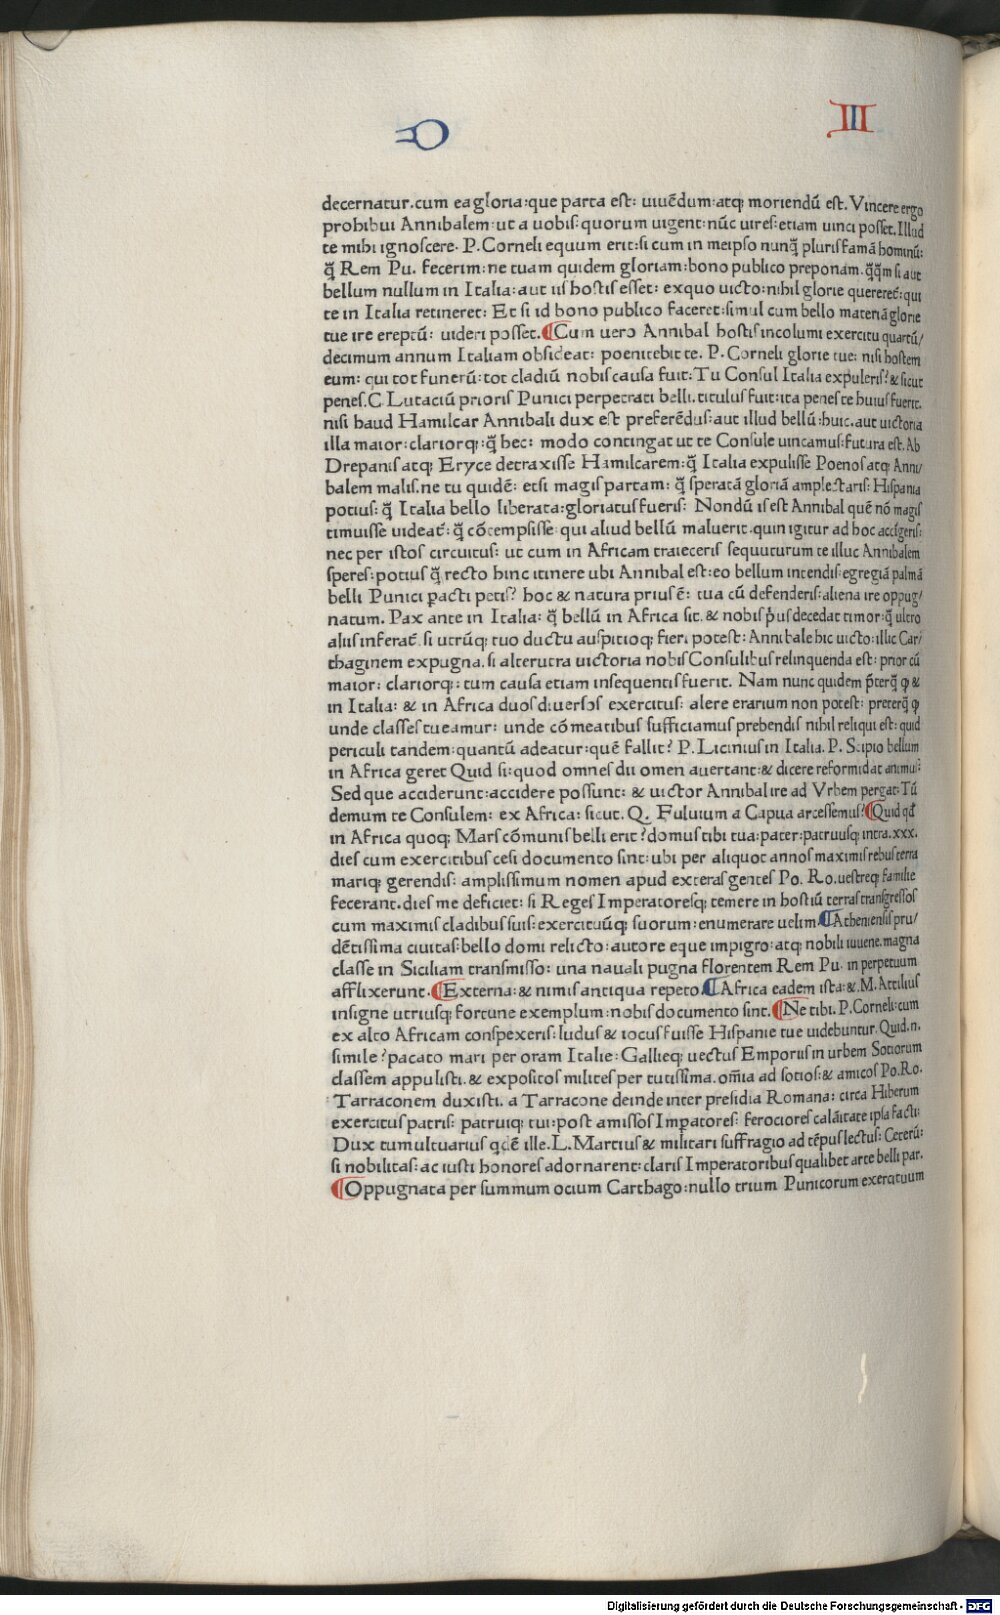 O III
decernatur.cum ea gloria:que parta est: uiuẽdum:atq; moriendũ est. Vincere ergo
prohibui Annibalem:ut a uobis:quorum uigent:nũc uires:etiam uinci posset. Illud
te mihi ignoscere. P. Corneli equum erit:si cum in meipso nunq̃ pluris famã hominũ:
q̃ Rem Pu. fecerim:ne tuam quidem gloriam:bono publico preponam.q̃q̃m si aut
bellum nullum in Italia:aut iis hostis esset: exquo uicto:nihil glorie quereret̃:qui
te in Italia retineret: Et si id bono publico faceret:simul cum bello materiã glorie
tue ire ereptũ: uideri posset.¶Cum uero Annibal hostis incolumi exercitu quartũ/
decimum annum Italiam obsideat: poenitebit te. P. Corneli glorie tue: nisi hostem
eum: qui tot funerũ:tot cladiũ nobis causa fuit:Tu Consul Italia expuleris?& sicut
penes.C.Lutaciũ prioris Punici perpetrati belli.titulus fuit:ita penes te huius fuerit.
nisi haud Hamilcar Annibali dux est preferẽdus:aut illud bellũ:huic.aut uictoria
illa maior:clariorq;:q̃ hec: modo contingat ut te Consule uincamus:futura est.Ab
Drepanis atq; Eryce detraxisse Hamilcarem:q̃ Italia expulisse Poenos atq; Anni/
balem malis.ne tu quidẽ: etsi magis partam: q̃ speratã gloriã amplectaris: Hispania
potius: q̃ Italia bello liberata:gloriatus fueris: Nondũ is est Annibal quẽ nõ magis
timuisse uideat̃: q̃ cõtempsisse: qui aliud bellũ maluerit.quin igitur ad hoc accĩgeris:
nec per istos circuitus: ut cum in Africam traieceris sequuturum te illuc Annibalem
speres:potius q̃ recto hinc itinere ubi Annibal est:eo bellum intendis:egregiã palmã
belli Punici ꝑacti petis? hoc & natura prius ẽ: tua cũ defenderis:aliena ire oppug/
natum. Pax ante in Italia: q̃ bellũ in Africa sit. & nobis p̃us decedat timor:q̃ ultro
aliis inferat̃.si utrũq; tuo ductu auspitioq; fieri potest: Annibale hic uicto:illic Car/
thaginem expugna.si alterutra uictoria nobis Consulibus relinquenda est: prior cũ
maior: clariorq;: tum causa etiam insequentis fuerit. Nam nunc quidem p̃terq̃ ꝙ &
in Italia: & in Africa duos diuersos exercitus: alere erarium non potest: preterq̃ ꝙ
unde classes tueamur: unde cõmeatibus sufficiamus prebendis nihil reliqui est: quid
periculi tandem:quantũ adeatur:quẽ fallit? P. Licinius in Italia. P. Scipio bellum
in Africa geret Quid si:quod omnes dii omen auertant:& dicere reformidat animus̃:
Sed que acciderunt:accidere possunt: & uictor Annibal ire ad Vrbem pergat:Tũ
demum te Consulem: ex Africa: sicut. Q. Fuluium a Capua arcessemus?¶Quid qđ
in Africa quoq; Mars cõmunis belli erit?domus tibi tua:pater:patruusq; intra.xxx.
dies cum exercitibus cesi documento sint:ubi per aliquot annos maximis rebus terra
mariq; gerendis: amplissimum nomen apud exteras gentes Po. Ro.uestreq; familie
fecerant.dies me deficiet: si Reges Imperatoresq; temere in hostiũ terras transgressos
cum maximis cladibus suis:exercituũq; suorum:enumerare uelim.¶Atheniensis pru/
dẽtissima ciuitas:bello domi relicto:autore eque impigro:atq; nobili iuuene.magna
classe in Siciliam transmisso: una nauali pugna florentem Rem Pu. in perpetuum
afflixerunt.¶Externa:& nimis antiqua repeto.¶Africa eadem ista:&.M.Attilius
insigne utriusq; fortune exemplum:nobis documento sint.¶Ne tibi.P.Corneli:cum
ex alto Africam conspexeris:ludus & iocus fuisse Hispanie tue uidebuntur.Quid.n.
simile?pacato mari per oram Italie:Gallieq; uectus Emporiis in urbem Sotiorum
classem appulisti.& expositos milites per tutissima.om̃ia ad sotios:& amicos Po.Ro.
Tarraconem duxisti. a Tarracone deinde inter presidia Romana: circa Hiberum
exercitus patris: patruiq; tui:post amissos Imꝑatores: ferociores calãitate ipsa facti:
Dux tumultuarius qdẽ ille.L.Martius & militari suffragio ad tẽpus lectus: Ceterũ:
si nobilitas:ac iusti honores adornarent:claris Imperatoribus qualibet arte belli par.
¶Oppugnata per summum ocium Carthago:nullo trium Punicorum exercituum
Digitalisierung gefördert durch die Deutsche Forschungsgemeinschaft - DFG